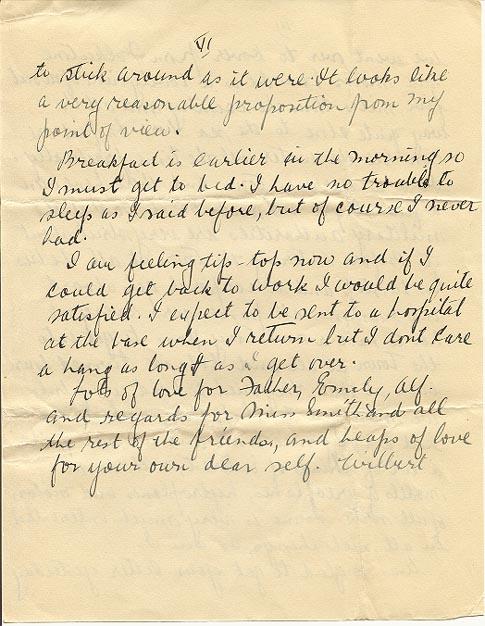 VI
to stick around as it were. It looks like
a very reasonable proposition from my
point of view.
Breakfast is earlier in the morning so
I must get to bed. I have no trouble to
sleep as I said before, but of course I never
had.
I am feeling tip-top now and if I
could get back to work I would be quite
satisfied. I expect to be sent to a hospital
at the base when I return but I dont care
a hang as long as I get over.
Lots of love for Father, Emily, Alf.
and regards for Miss Smith and all
the rest of the friends, and heaps of love
for your own dear self. Wilbert